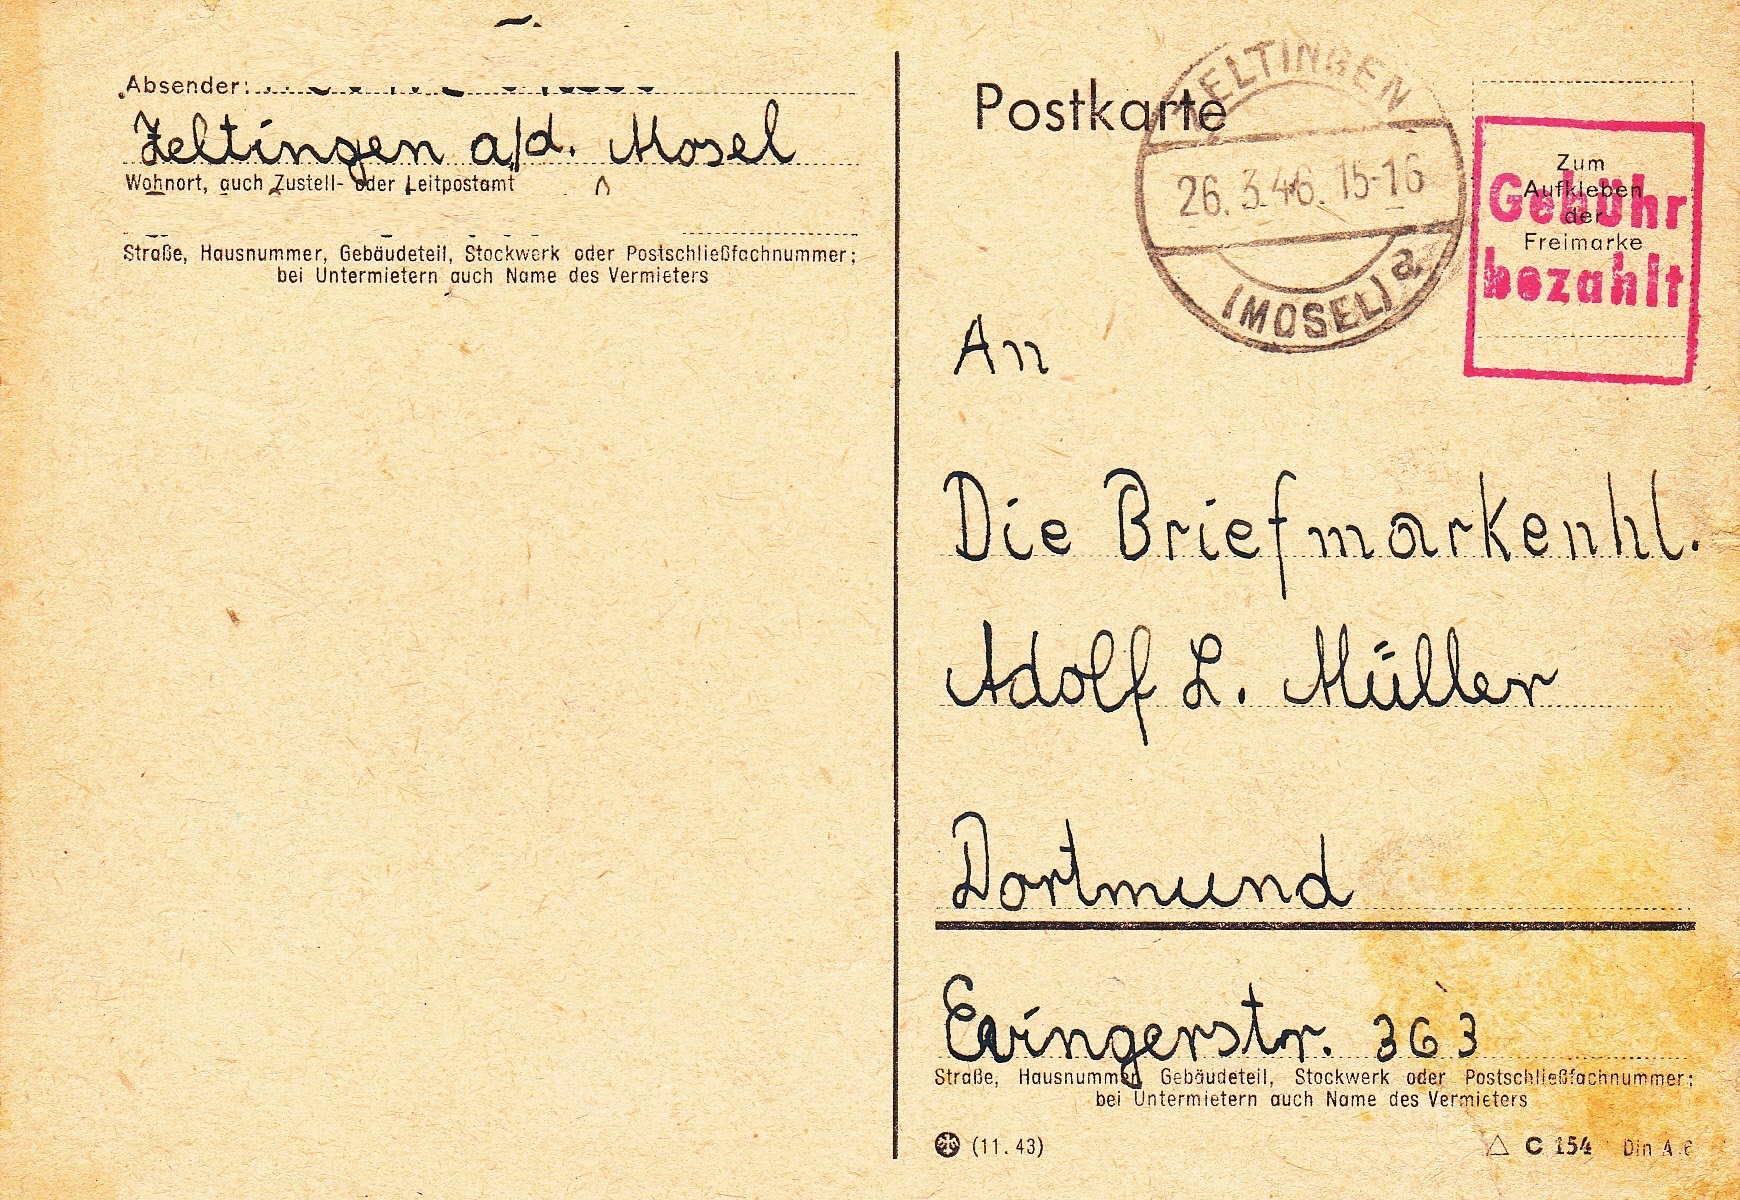 Absender:
Zeltingen a/d. Mosel
Wohnort, auch Zustell- oder Leitpostamt
Straße, Hausnummer, Gebäudeteil, Stockwerk oder Postschließfachnummer;
bei Untermietern auch Name des Vermieters
Postkarte
ZELTINGEN
26.3.46.15-16
(MOSEL) a
Zum
Aufkleben
der
Freimarke
Gebühr
bezahlt
An
Die Briefmarkenhl.
Adolf L. Müller
Dortmund
Evingerstr. 363
Straße, Hausnummer, Gebäudeteil, Stockwerk oder Postschließfachnummer;
bei Untermietern auch Name des Vermieters
(11.43)
C 154 Din A 6